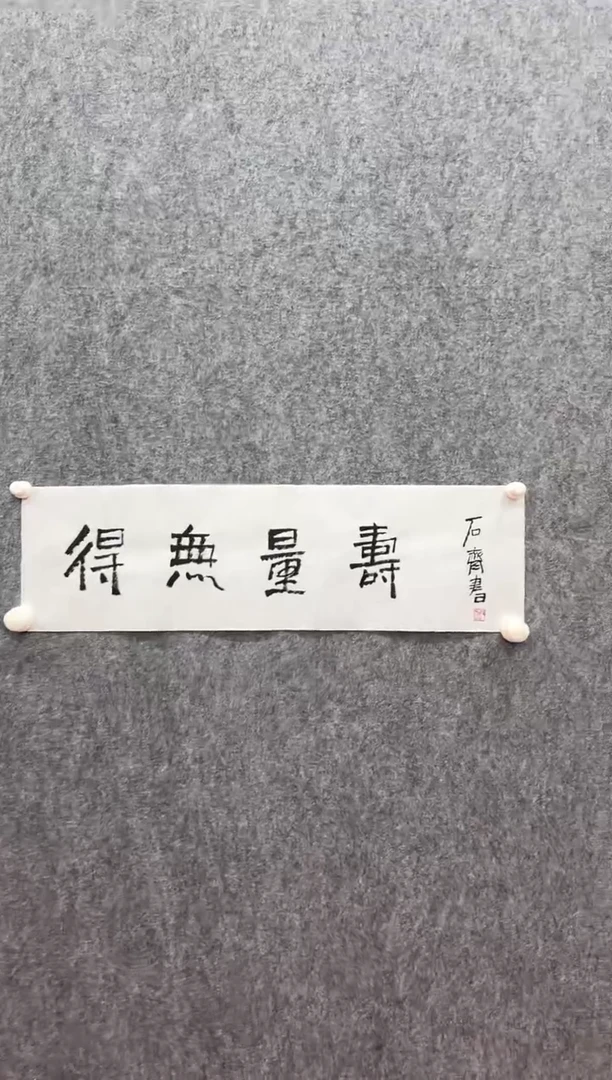 得無量壽
石齊書